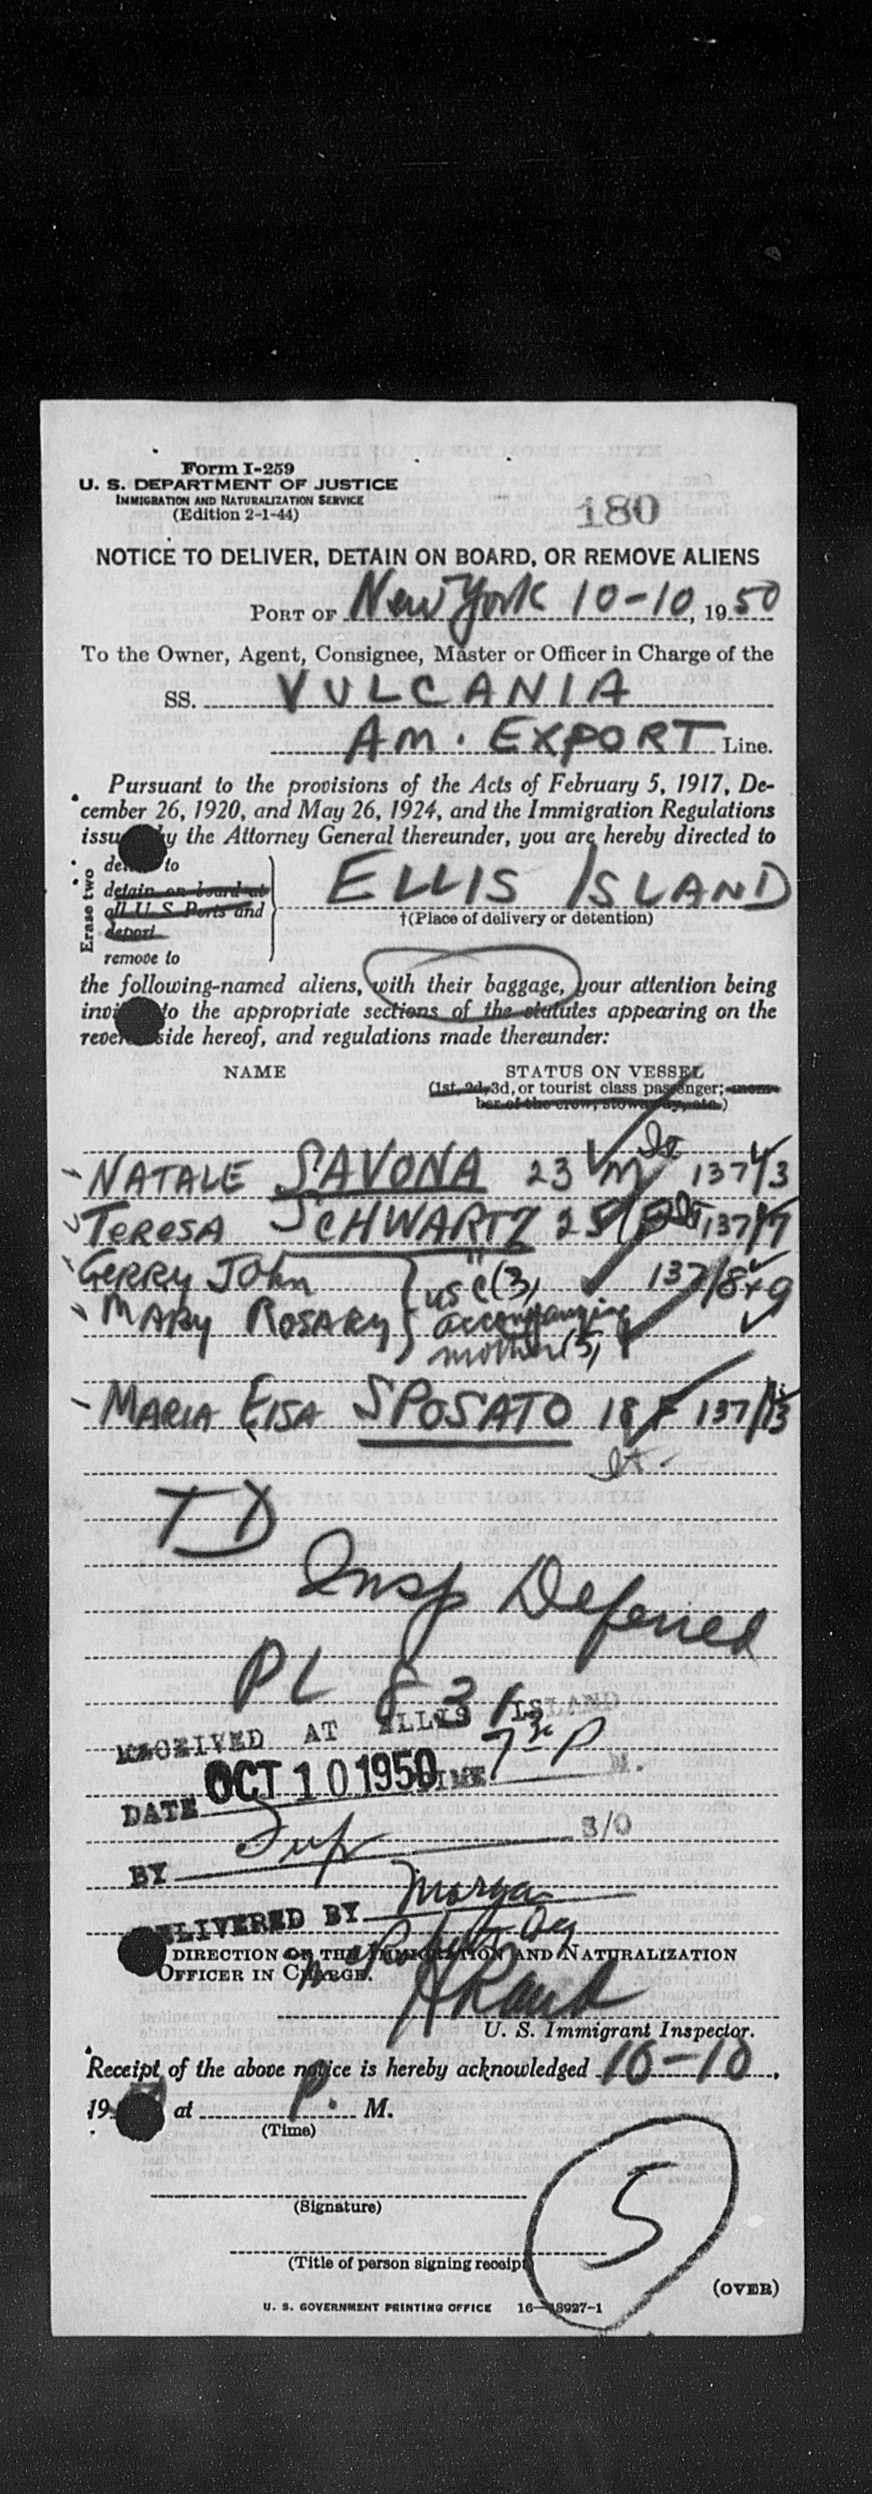 Form I-259
U. S. DEPARTMENT OF JUSTICE
IMMIGRATION AND NATURALIZATION SERVICE
(Edition 2-1-44)
180
NOTICE TO DELIVER, DETAIN ON BOARD, OR REMOVE ALIENS
PORT OF New York 10-10, 1950
To the Owner, Agent, Consignee, Master or Officer in Charge of the
SS. VULCANIA
AM. EXPORT Line.
Pursuant to the provisions of the Acts of February 5, 1917, De-
cember 26, 1920, and May 26, 1924, and the Immigration Regulations
issued by the Attorney General thereunder, you are hereby directed to
Erase two
to
detain on board at
all U. S. Ports and
deport
remove to
ELLIS ISLAND
†(Place of delivery or detention)
the following-named aliens, with their baggage, your attention being
to the appropriate sections of the statutes appearing on the
side hereof, and regulations made thereunder:
NAME STATUS ON VESSEL
(1st, 2d, 3d, or tourist class passenger; mem-
ber of the crew, stowaway, etc.)
NATALE SAVONA 23 M It 137/3
TERESA SCHWARTZ 25 F It 137/7
GERRY JOHN USC (3) 137/8+9
MARY ROSARY accompanying
mother (5)
MARIA ELSA SPOSATO 18 F 137/13
It.
TD
Insp Deferred
PL 831
RECEIVED AT ELLIS ISLAND
DATE OCT 10 1950 TIME 7 30 P M.
BY S/O
DELIVERED BY
DIRECTION OF THE IMMIGRATION AND NATURALIZATION
OFFICER IN CHARGE.
U. S. Immigrant Inspector.
Receipt of the above notice is hereby acknowledged 10-10,
19 at P. M.
(Time)
(Signature)
5
(Title of person signing receipt)
(OVER)
U. S. GOVERNMENT PRINTING OFFICE 16—18927-1